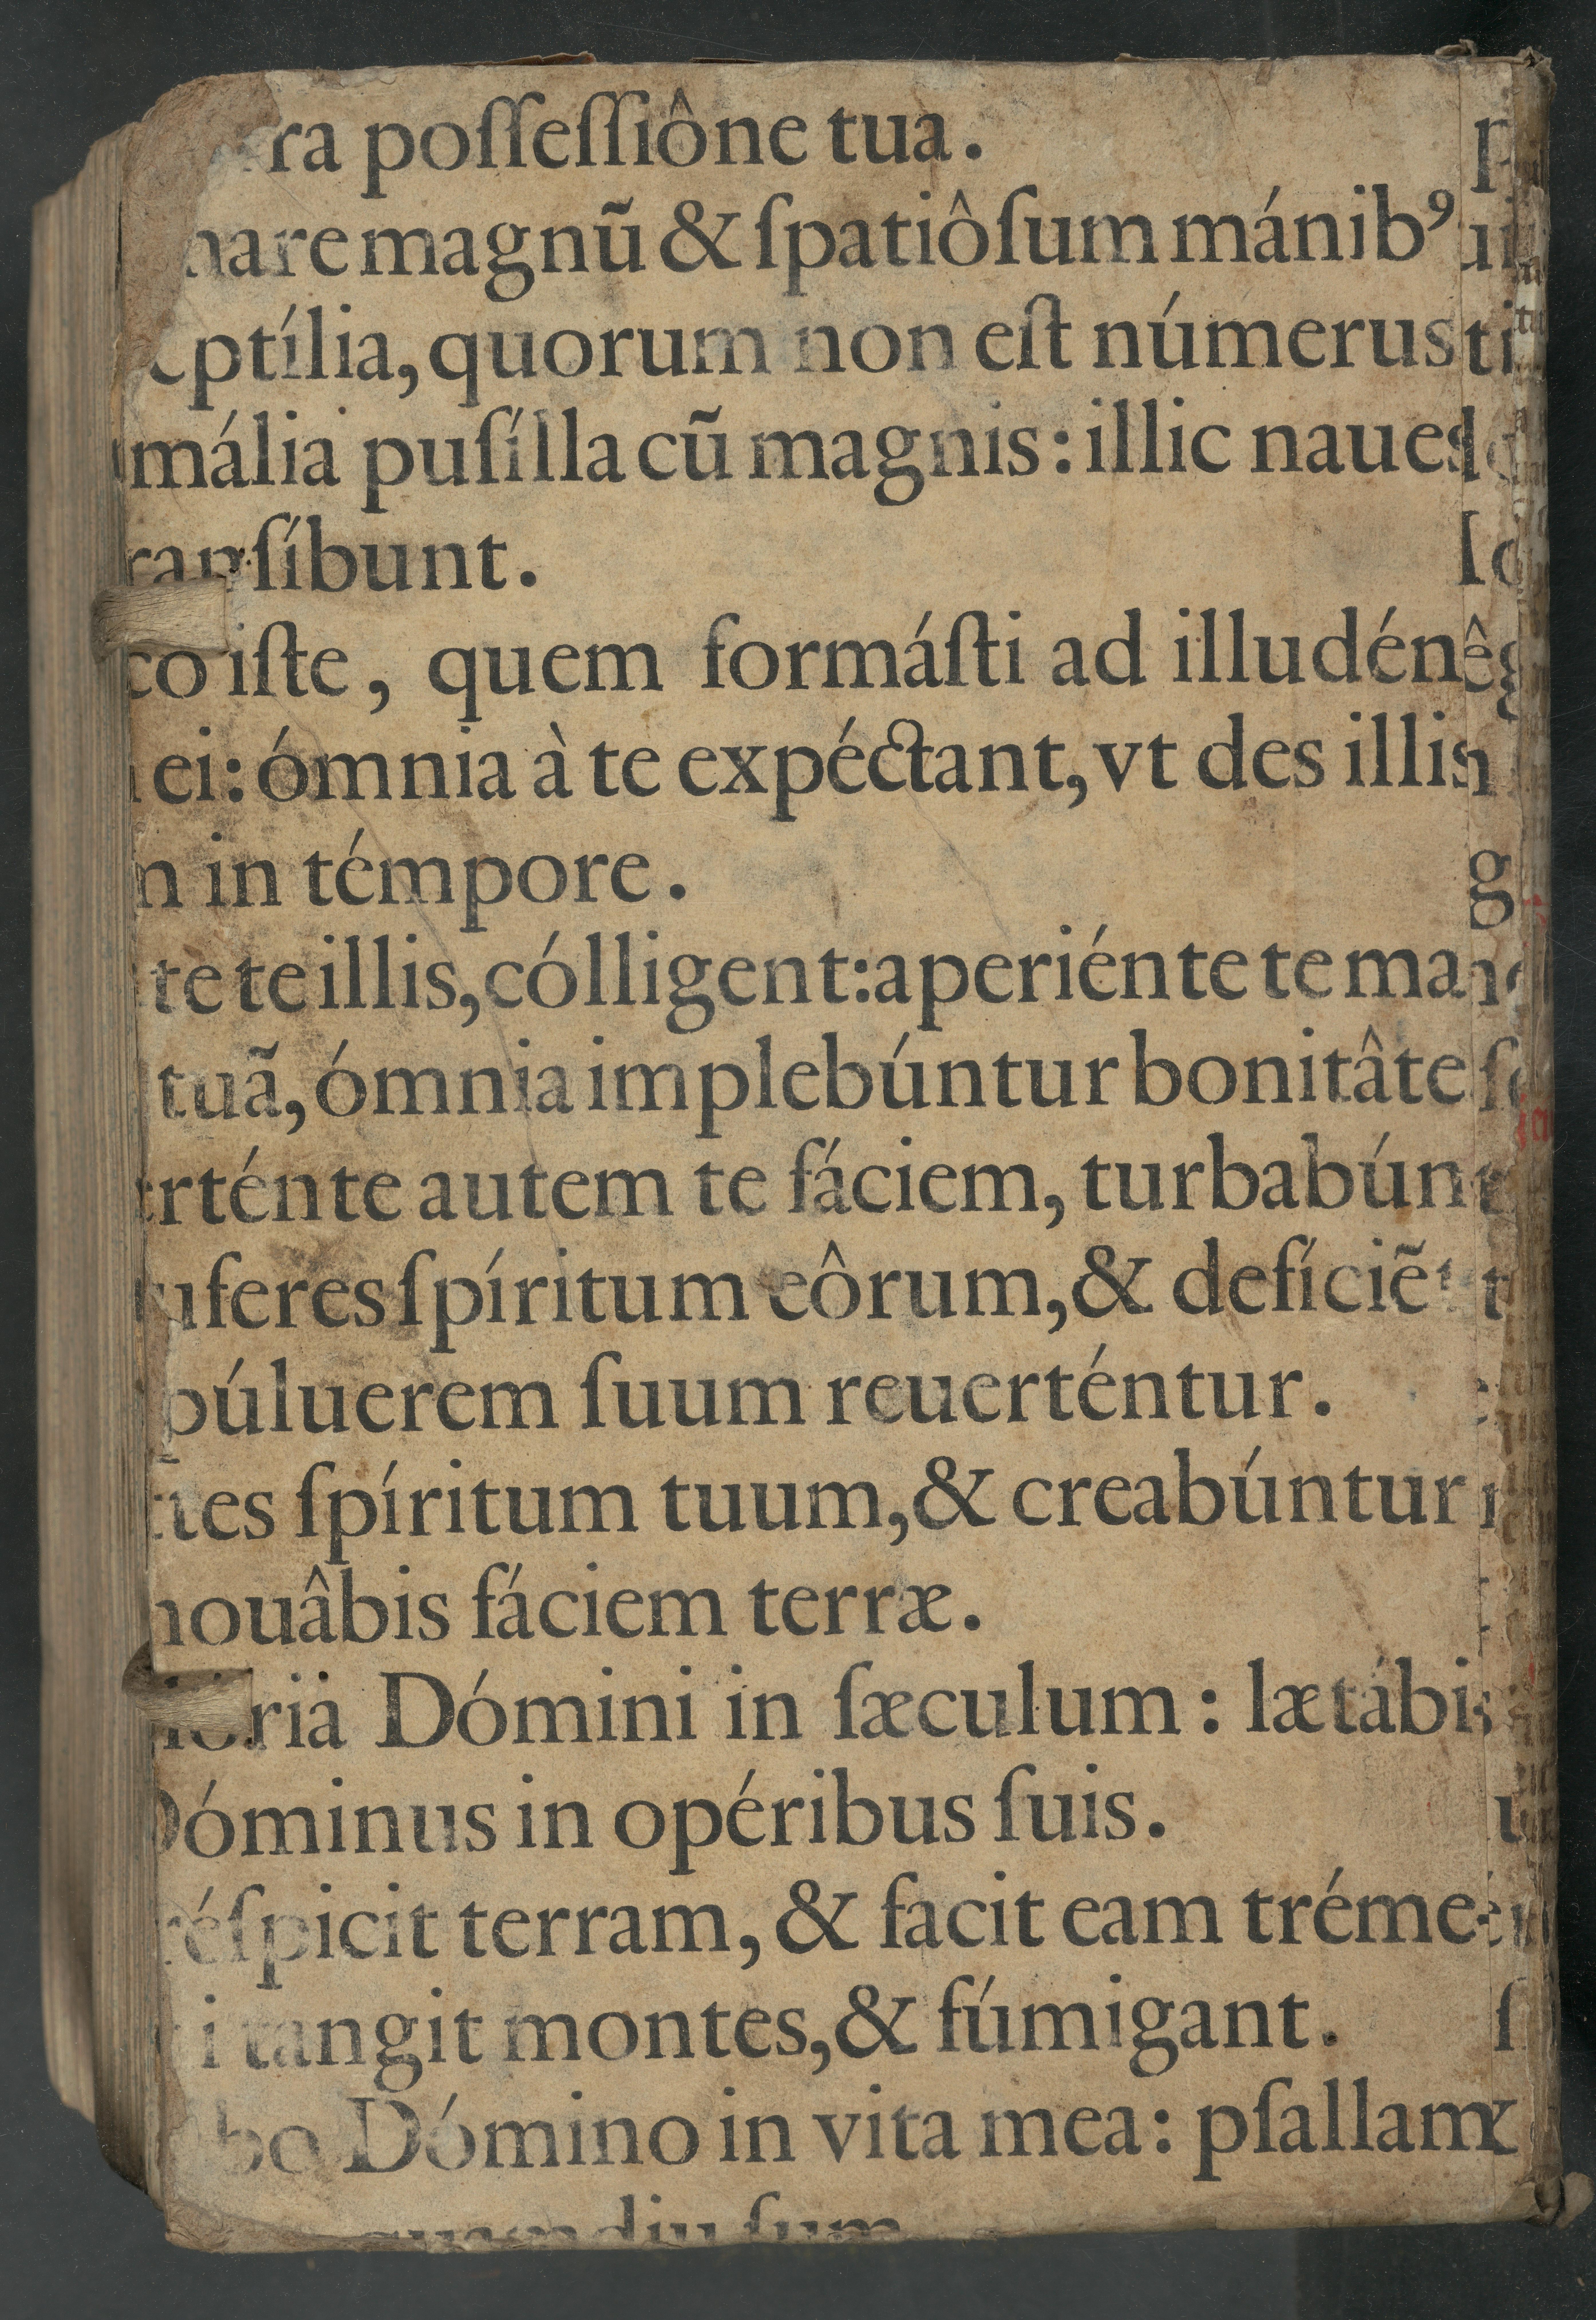 ra poſſeſſiône tua.
mare magnũ & ſpatiôſum mánibꝰ
eptília, quorum non eſt númerus
mália puſílla cũ magnis: illic naues
ranſíbunt.
co iſte, quem formáſti ad illudén
ei: ómnia à te expéctant, vt des illis
n in témpore.
te te illis, cólligent: aperiénte te ma
tuã, ómnia implebúntur bonitâte
erténte autem te fáciem, turbabún
uferes ſpíritum eôrum, & defíciẽt
púluerem ſuum reuerténtur.
ttes ſpíritum tuum, & creabúntur
nouâbis fáciem terræ.
ria Dómini in ſæculum: lætábis
Dóminus in opéribus ſuis.
réſpicit terram, & facit eam tréme
i tangit montes, & fúmigant.
bo Dómino in vita mea: pſallam
quamdiu ſum